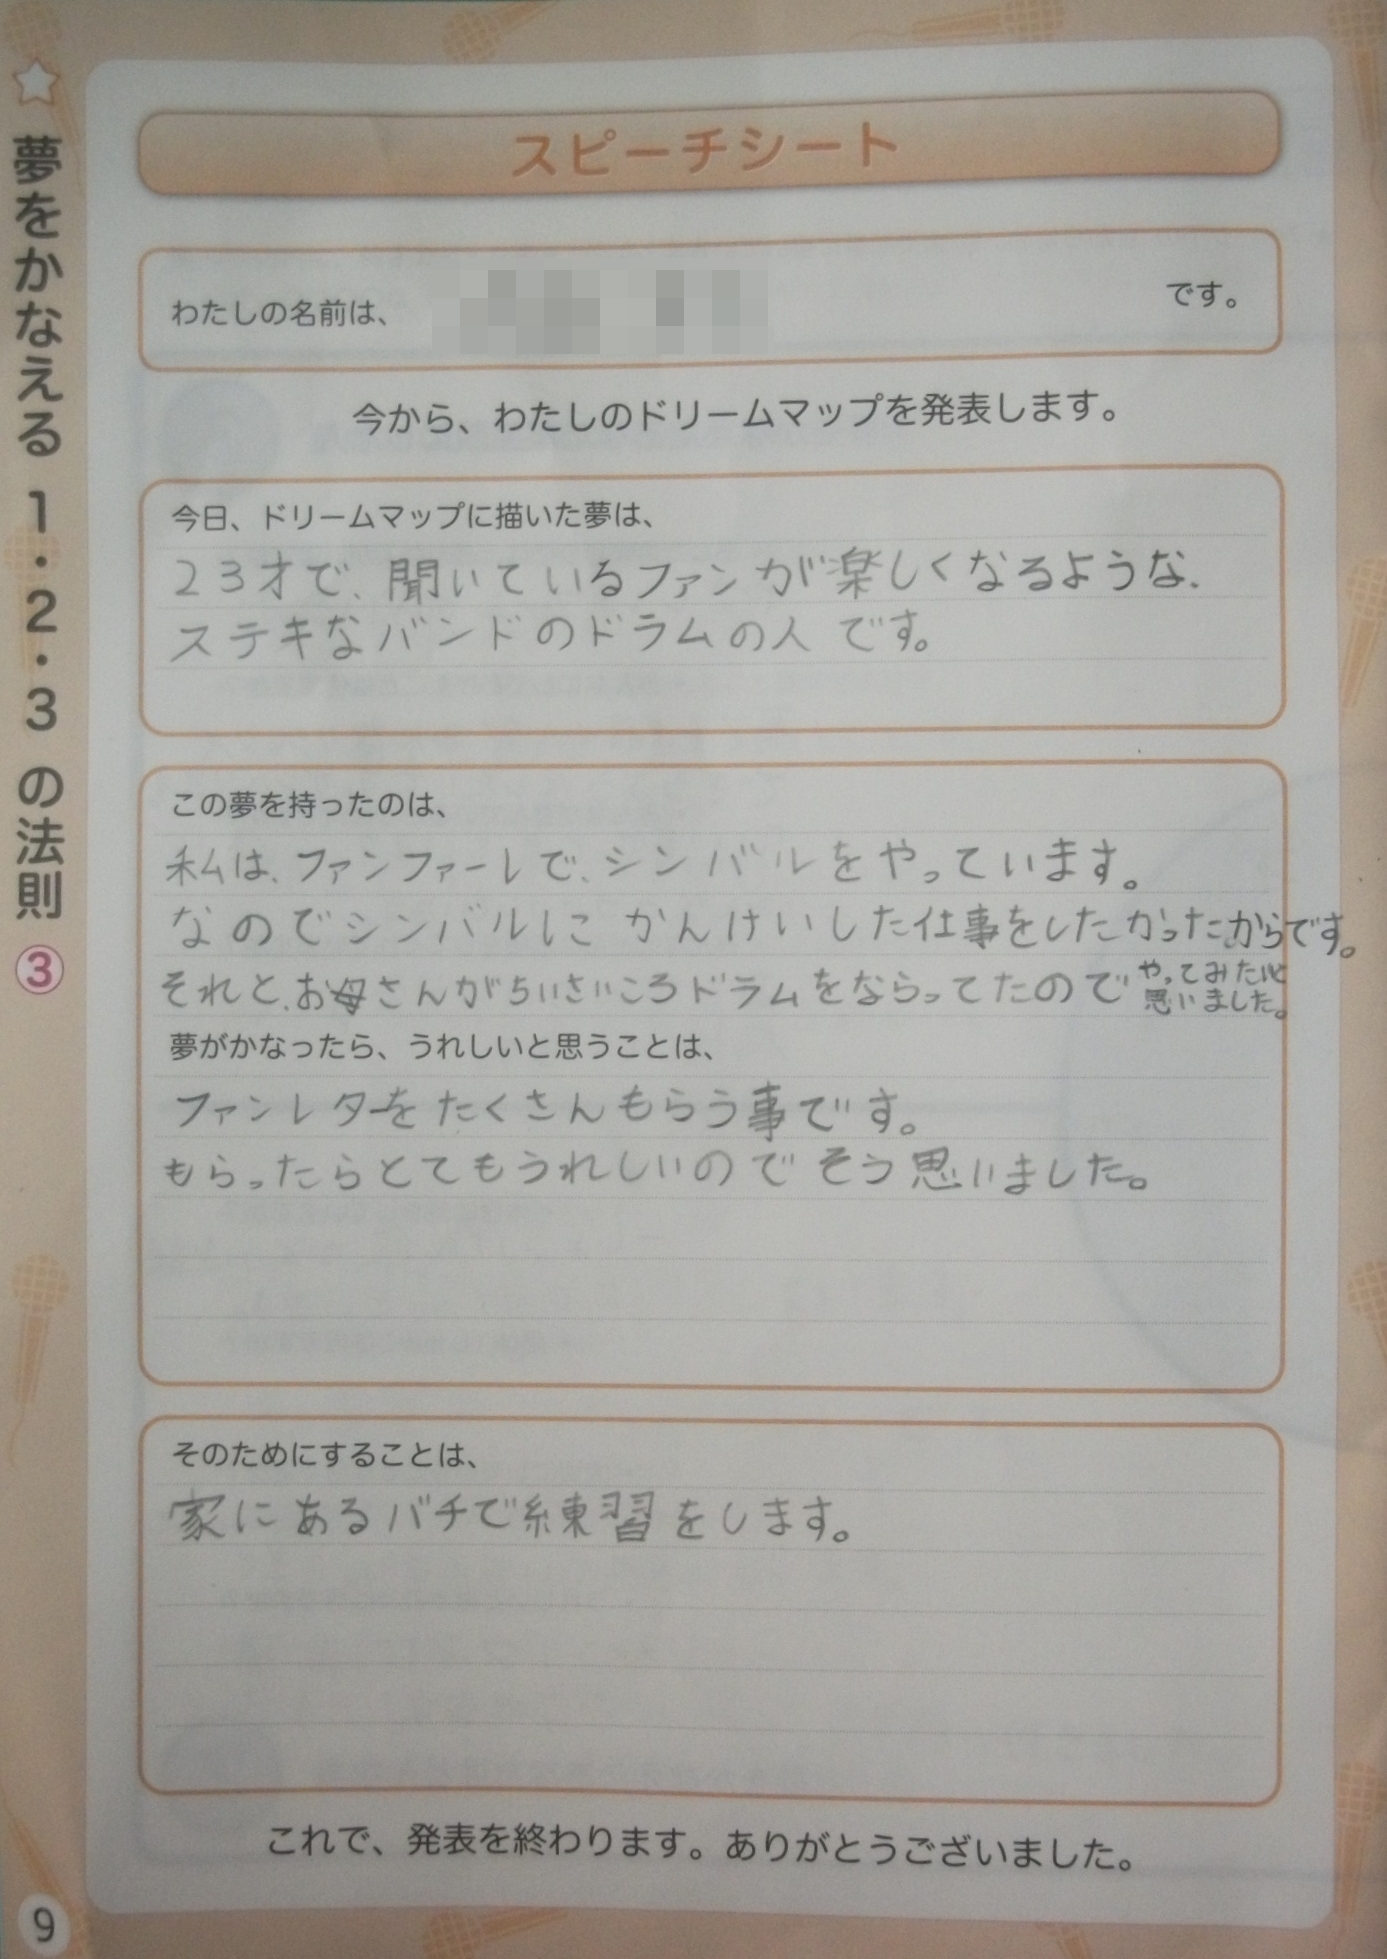 夢をかなえる 1・2・3 の法則 ③
スピーチシート
わたしの名前は、
です。
今から、わたしのドリームマップを発表します。
今日、ドリームマップに描いた夢は、
23才で、聞いているファンが楽しくなるような、
ステキなバンドのドラムの人です。
この夢を持ったのは、
私は、ファンファーレで、シンバルをやっています。
なのでシンバルにかんけいした仕事をしたかったからです。
それと、お母さんがちいさいころドラムをならってたのでやってみたいと
思いました。
夢がかなったら、うれしいと思うことは、
ファンレターをたくさんもらう事です。
もらったらとてもうれしいのでそう思いました。
そのためにすることは、
家にあるバチで練習をします。
これで、発表を終わります。ありがとうございました。
9